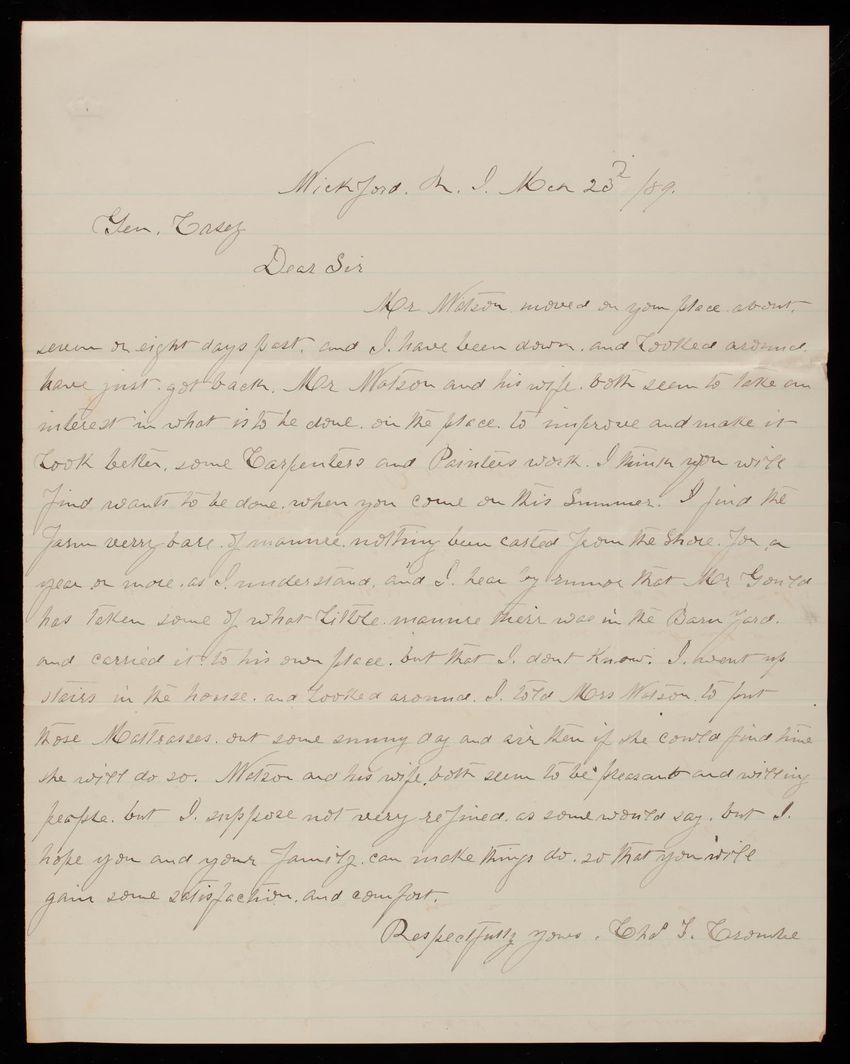 Wickford. R. I. Mch 23d /89.
Gen. Casey
Dear Sir
Mr Watson. moved on your place. about.
seven or eight days past. and I. have been down. and Looked around.
have just. got back. Mr Watson and his wife. both seem to take an
interest in what is to be done. on the place. to improve and make it
Look better. some Carpenters and Painters work. I think you will
find wants to be done. when you come on this Summer. I find the
farm verry bare. of manure. nothing been carted from the Shore. for a
year or more. as I. understand. and I. hear by rumor that Mr Gould
has taken some of what Little. manure their was in the Barn Yard.
and carried it to his own place. but that I. dont Know. I. went up
stairs in the house. and Looked around. I. told Mrs Watson. to put
those Mattrasses. out some sunny day and air then if she could find time
she will do so. Watson and his wife. both seem to be pleasant and willing
people. but I. suppose not very refined. as some would say. but I.
hope you and your Family. can make things do. so that you will
gain some satisfaction. and comfort.
Respectfully yours. Chas T. Crombe